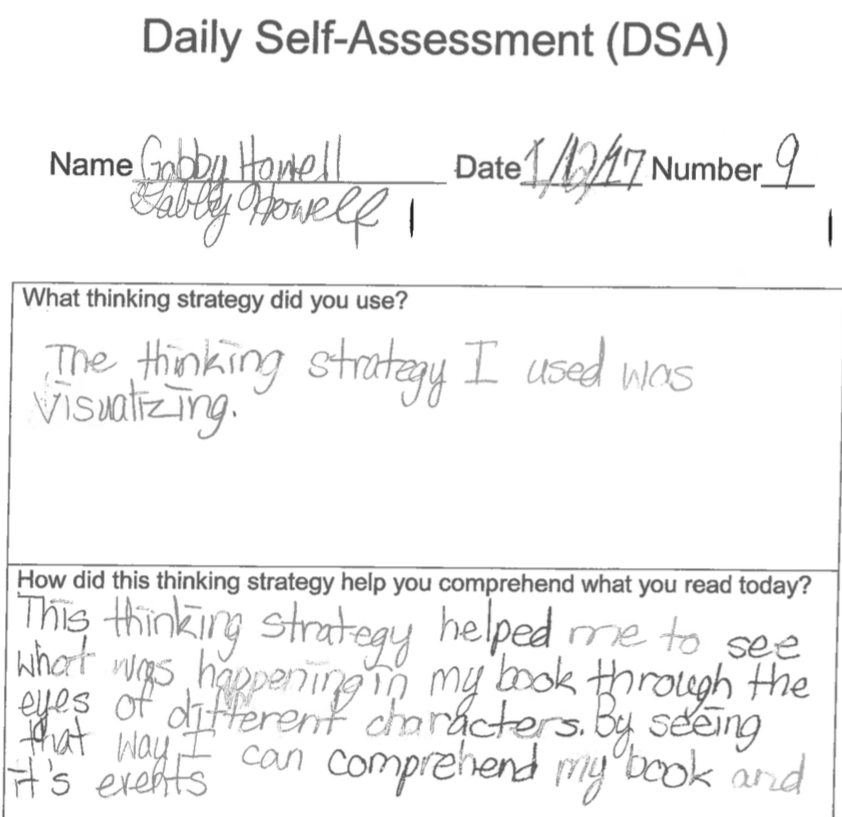 Daily Self-Assessment (DSA)
Name Gabby Howell Date 1/12/17 Number 9
Gabby Howell
What thinking strategy did you use?
The thinking strategy I used was
visualizing.
How did this thinking strategy help you comprehend what you read today?
This thinking strategy helped me to see
what was happening in my book through the
eyes of different characters. By seeing
that way I can comprehend my book and
it's events